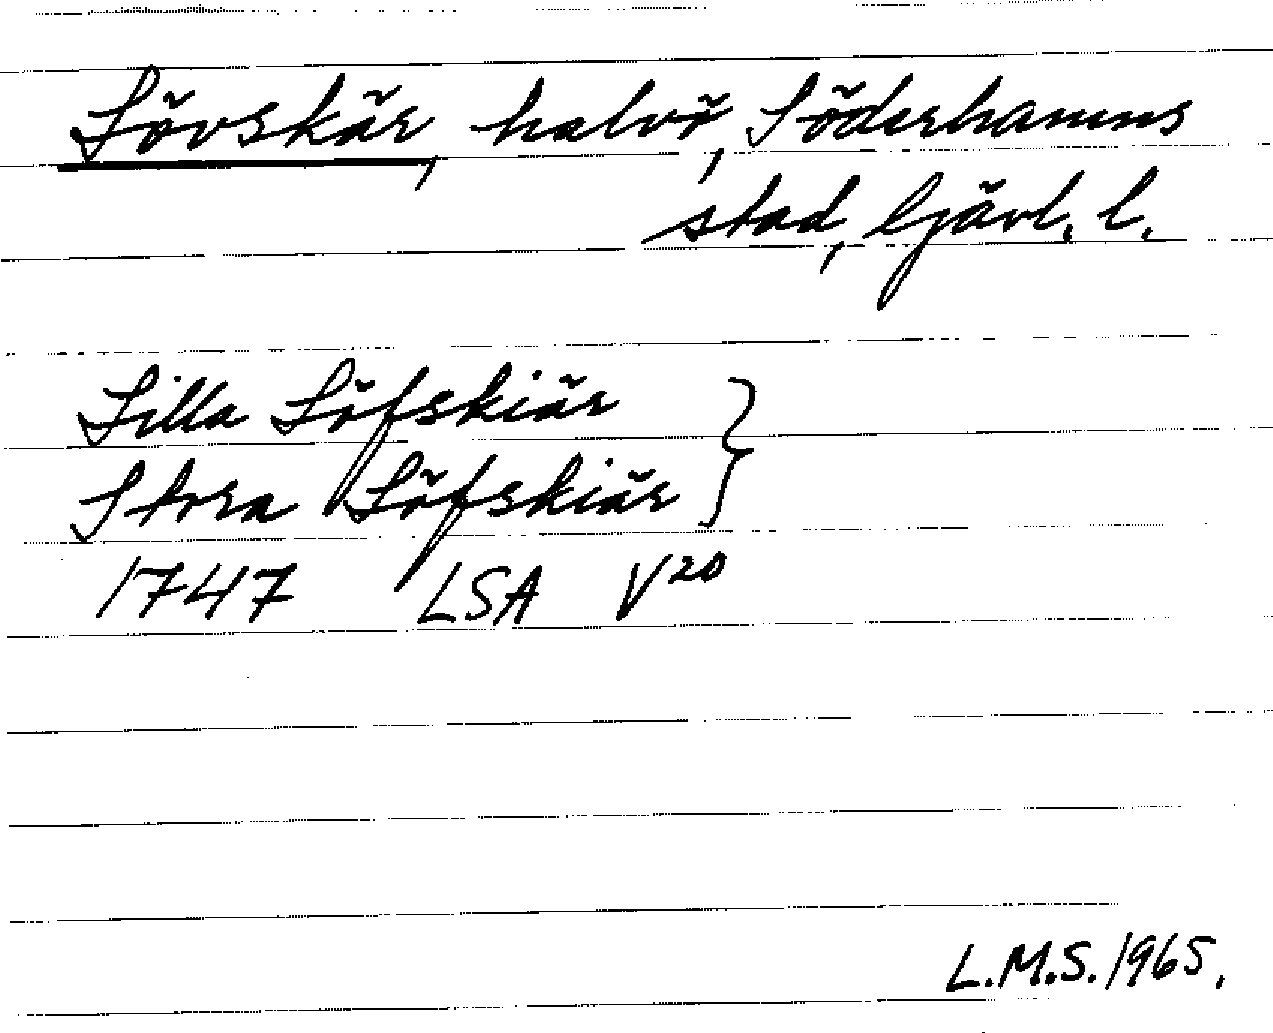 Lövskär, halvö, Söderhamns
stad, Gävl. l.
Lilla Löfskiär }
Stora Löfskiär
1747 LSA V20
L.M.S. 1965.